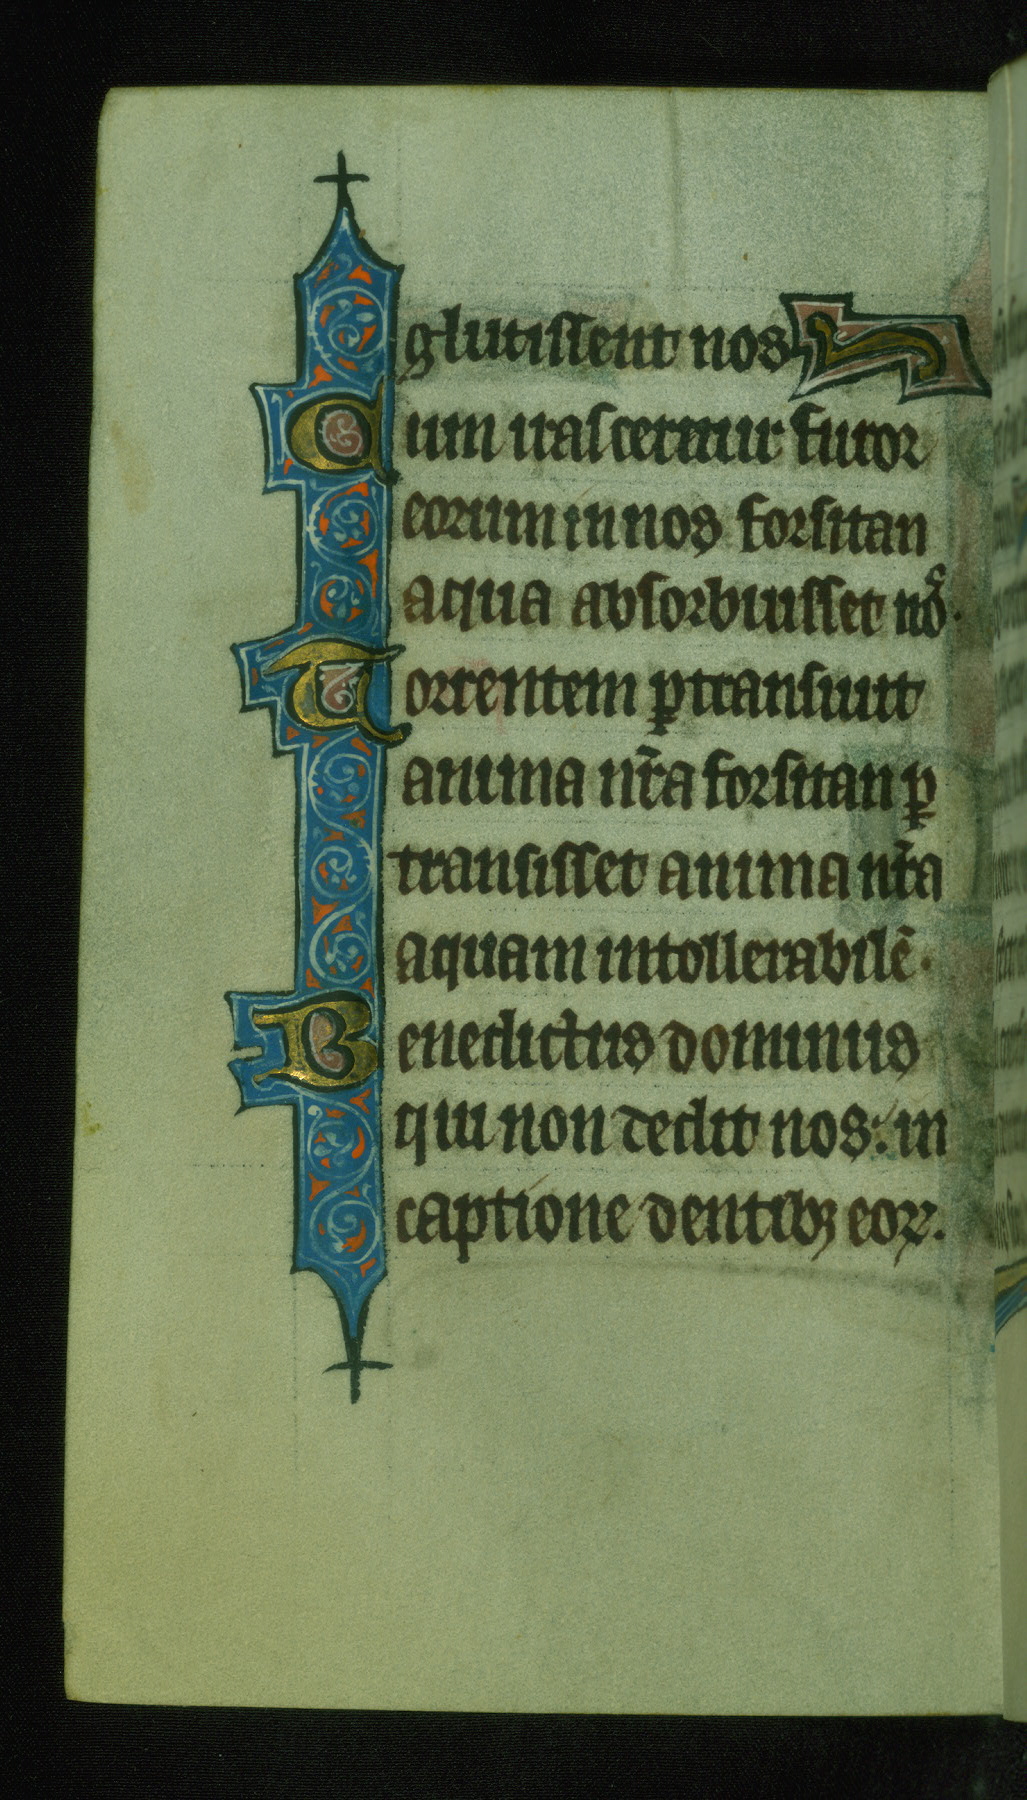 glutissent nos
Cum irasceretur furor
eorum in nos forsitan
aqua absorbuisset nos.
Torrentem ꝑtransiuit
anima nr̄a forsitan ꝑ
transisset anima nr̄a
aquam intollerabilē.
Benedictus dominus
qui non dedit nos: in
captione dentibꝫ eoꝝ.